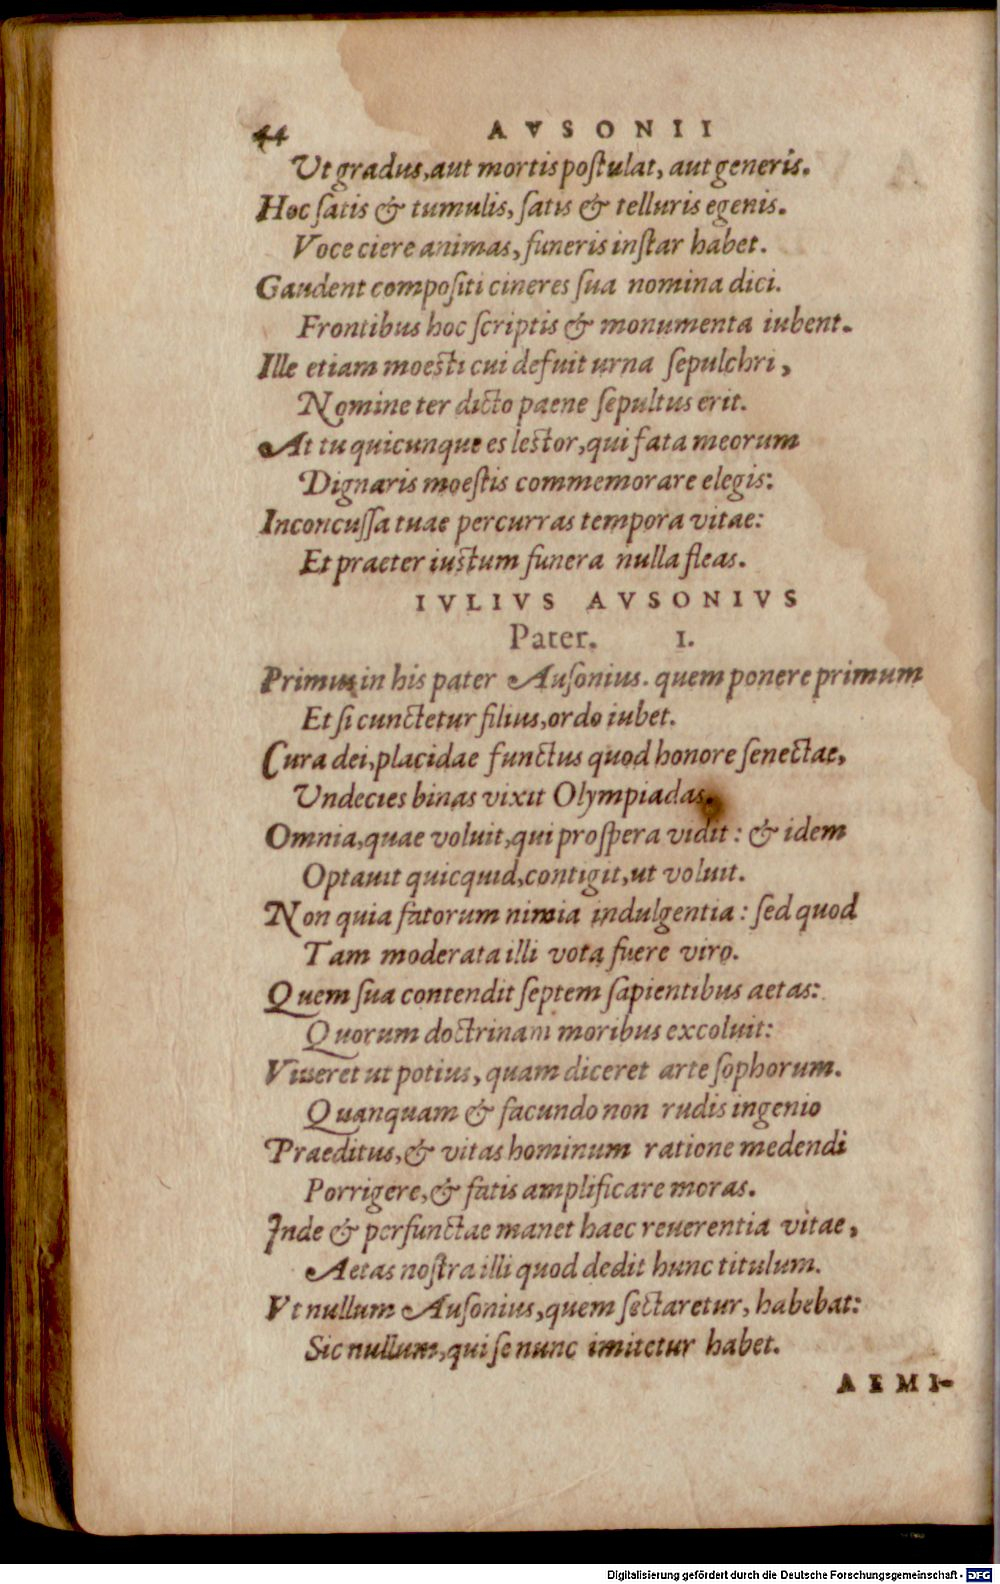 44 AVSONII
Ut gradus, aut mortis postulat, aut generis.
Hoc satis & tumulis, satis & telluris egenis.
Voce ciere animas, funeris instar habet.
Gaudent compositi cineres sua nomina dici.
Frontibus hoc scriptis & monumenta iubent.
Ille etiam moesti cui defuit urna sepulchri,
Nomine ter dicto paene sepultus erit.
At tu quicunque es lector, qui fata meorum
Dignaris moestis commemorare elegis:
Inconcussa tuae percurras tempora vitae:
Et praeter iustum funera nulla fleas.
IVLIVS AVSONIVS
Pater. 1.
Primus in his pater Ausonius. quem ponere primum
Et si cunctetur filius, ordo iubet.
Cura dei, placidae functus quod honore senectae,
Undecies binas vixit Olympiadas.
Omnia, quae voluit, qui prospera vidit: & idem
Optauit quicquid, contigit, ut voluit.
Non quia fatorum nimia indulgentia: sed quod
Tam moderata illi vota fuere viro.
Quem sua contendit septem sapientibus aetas:
Quorum doctrinam moribus excoluit:
Viueret ut potius, quam diceret arte sophorum.
Quanquam & facundo non rudis ingenio
Praeditus, & vitas hominum ratione medendi
Porrigere, & fatis amplificare moras.
Inde & perfunctae manet haec reuerentia vitae,
Aetas nostra illi quod dedit hunc titulum.
Vt nullum Ausonius, quem sectaretur, habebat:
Sic nullum, qui se nunc imitetur habet.
AEMI-
Digitalisierung gefördert durch die Deutsche Forschungsgemeinschaft - DFG